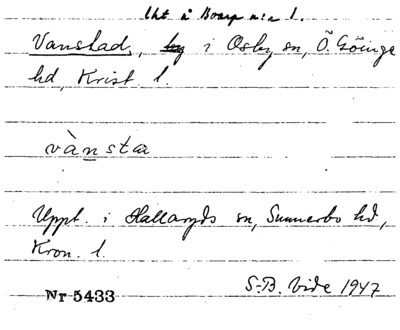 Uht å
Vanstad, i Osby sn, Ö. Göinge
hd, Krist. l.
vànsta
Uppt. i Hallaryds sn, Sunnerbo hd,
Kron. l.
S.-B. Vide 1947
Nr 5433